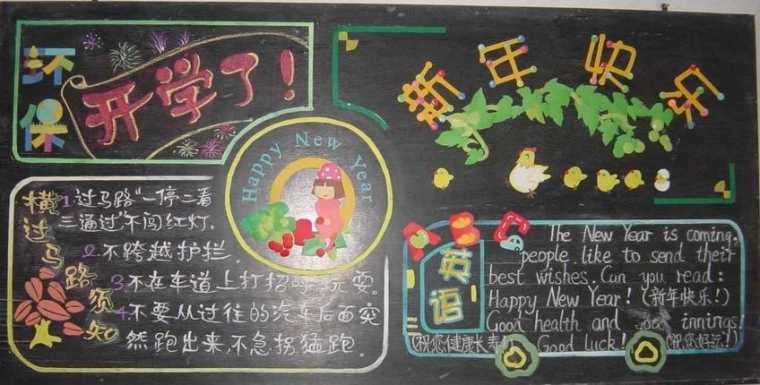 环保
开学了!
新年节乐
Happy New Year
横过马路须知
1.过马路“一停二看
三通过”不闯红灯.
2.不跨越护拦.
3不在车道上打招呼玩耍。
4不要从过往的汽车后面突
然跑出来,不急拐猛跑.
英语
The New Year is coming,
people like to send their
best wishes. Can you read:
Happy New Year! (新年快乐!)
Good health and innings!
(祝您健康长寿!) Good luck! (祝您好运!)